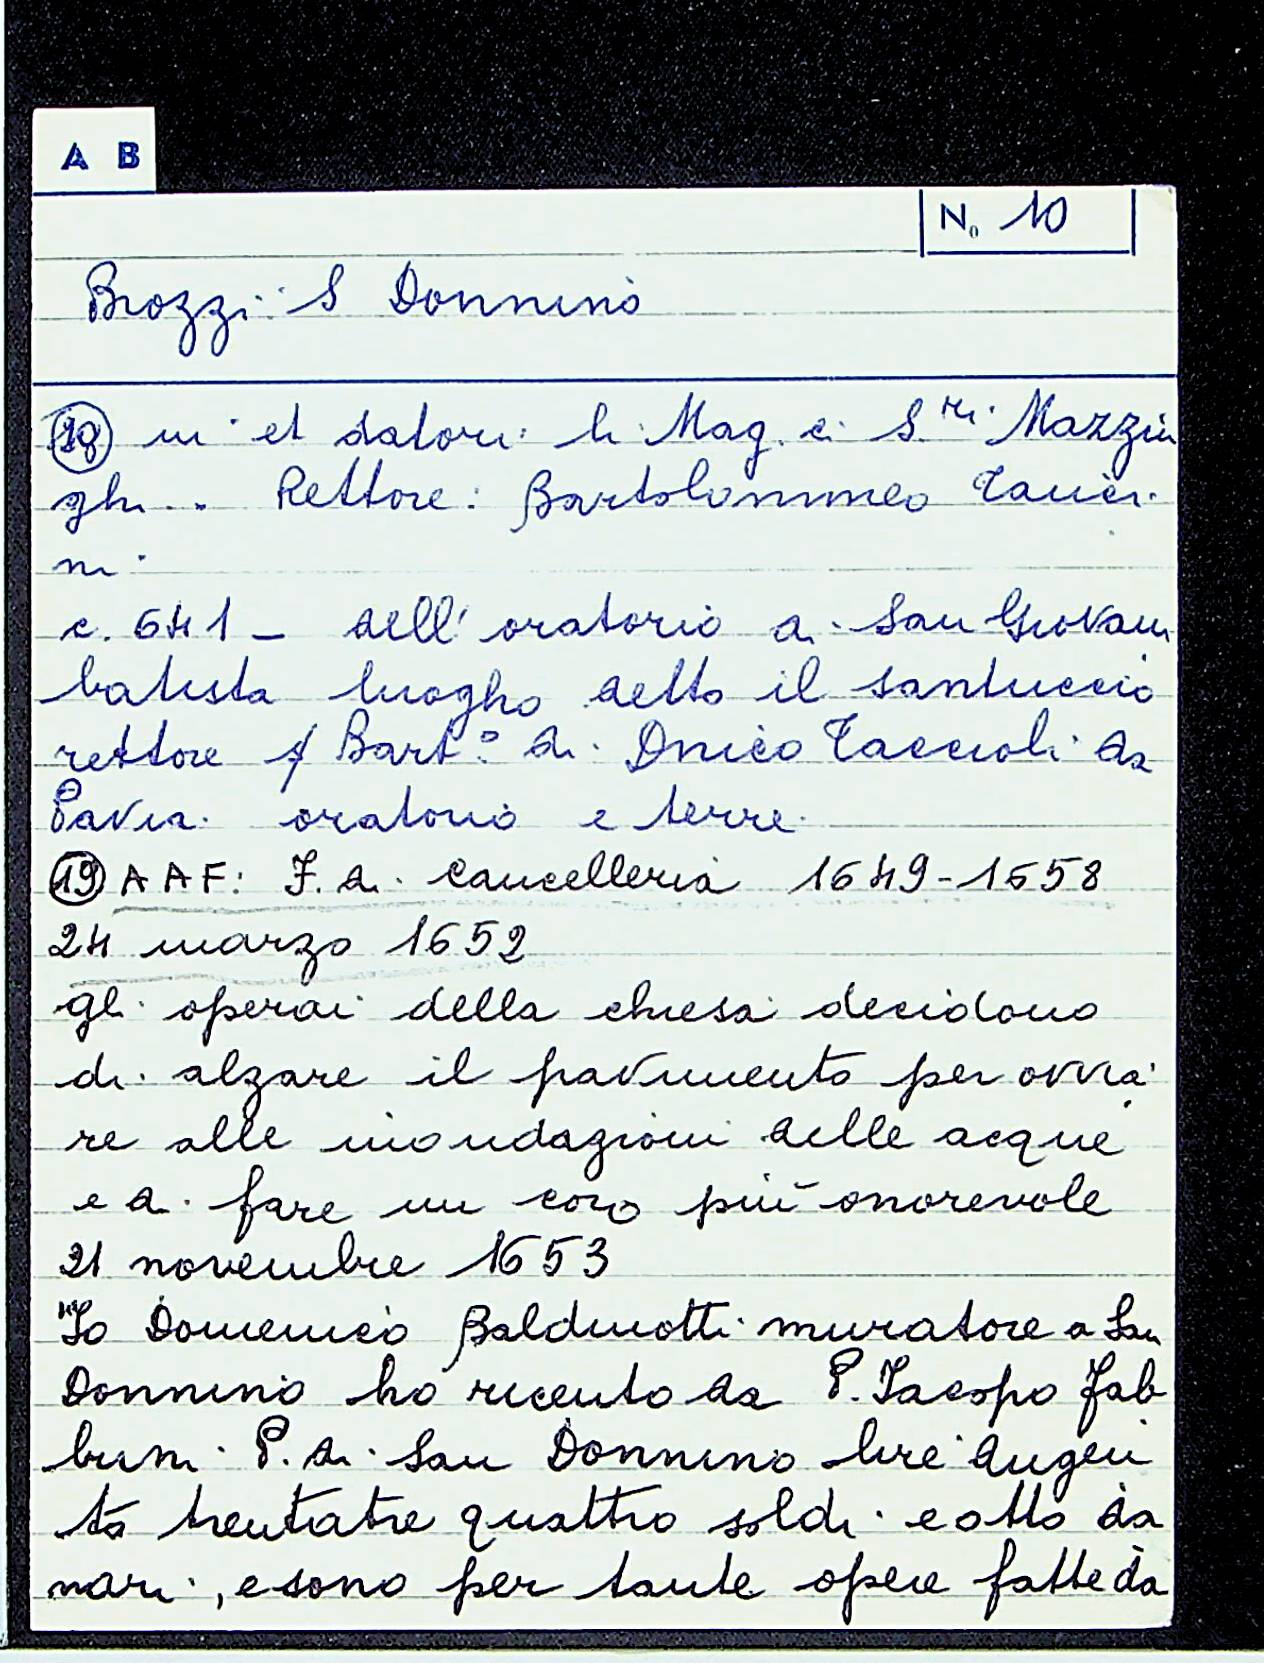 A B
N. 10
Brozzi: S Donnino
(18) ni et datori: li Mag.ci S.ri Mazzin
ghi.. Rettore: Bartolommeo
ni
c. 641 - dell'oratorio di San Giovam
batista luogho detto il santuccio
rettore Bart.o di Taccioli da
Pavia. oratorio e terre.
(19) AAF: F. di Cancelleria 1649-1658
24 marzo 1652
gli operai della chiesa decidono
di alzare il pavimento per ovvia
re alle inondazioni delle acque
e di fare un coro più onorevole
21 novembre 1653
"Io Domenico Baldinotti muratore a San
Donnino ho riceuto da P. Iacopo Fab
brini P. di San Donnino lire dugen
to trentatre quattro soldi e otto da
nari, e sono per tante opere fatte da